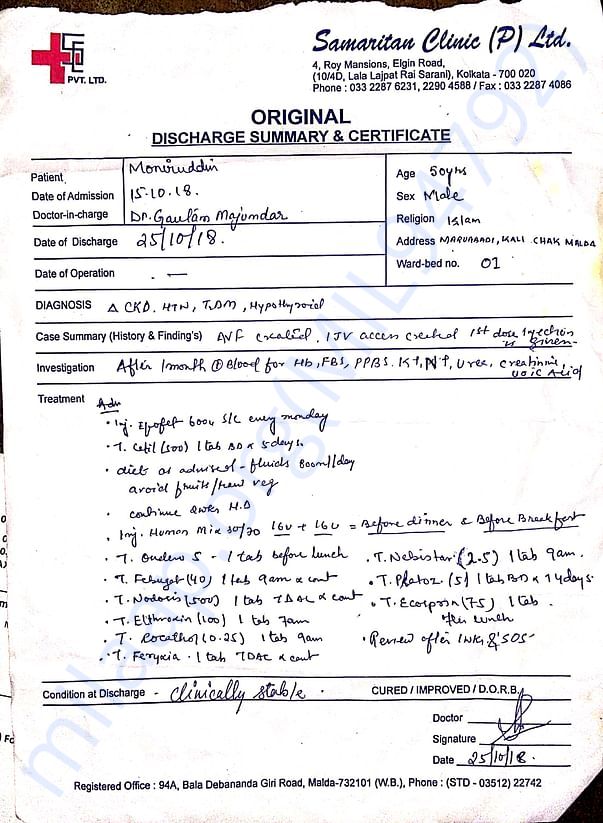 SCL
PVT. LTD.
Samaritan Clinic (P) Ltd.
4, Roy Mansions, Elgin Road,
(10/4D, Lala Lajpat Rai Sarani), Kolkata - 700 020
Phone : 033 2287 6231, 2290 4588 / Fax : 033 2287 4086
ORIGINAL
DISCHARGE SUMMARY & CERTIFICATE
Patient Moniruddin
Date of Admission 15.10.18.
Doctor-in-charge Dr. Gautam Majumdar
Date of Discharge 25/10/18.
Date of Operation . —
Age 50yrs
Sex Male
Religion Islam
Address MARUABADI, KALI CHAK MALDA
Ward-bed no. 01
DIAGNOSIS Δ CKD, HTN, T2DM, Hypothyroid
Case Summary (History & Finding's) AVF created. IJV access created 1st dose Injection is given
Investigation After 1 month Blood for Hb, FBS, PPBS. K+, N+, Urea, Creatinine
Uric Acid
Treatment Adv
• Inj. 6000 S/C every monday
• T. Cetil (500) 1 tab BD x 5 days.
• diet as advised - fluids 800ml/day
avoid fruits/raw veg
• continue H.D
• Inj. Human Mix 30/70 16U + 16U = Before dinner & Before Breakfast
• T. 5 - 1 tab before lunch
• T. Febugat (40) 1 tab 9am x cont
• T. Nodosis (500) 1 tab TDAC x cont
• T. Elthroxin (100) 1 tab 7am
• T. Rocaltrol (0.25) 1 tab 9am
• T. 1 tab TDAC x cont
• T. Nebistar (2.5) 1 tab 9am.
• T. (5) 1 tab BD x 14days.
• T. Ecosprin (75) 1 tab.
after lunch
• Review after 1 WK & 'SOS'
Condition at Discharge - Clinically stable .
CURED / IMPROVED / D.O.R.B.
Doctor
Signature
Date 25/10/18.
Registered Office : 94A, Bala Debananda Giri Road, Malda-732101 (W.B.), Phone : (STD - 03512) 22742